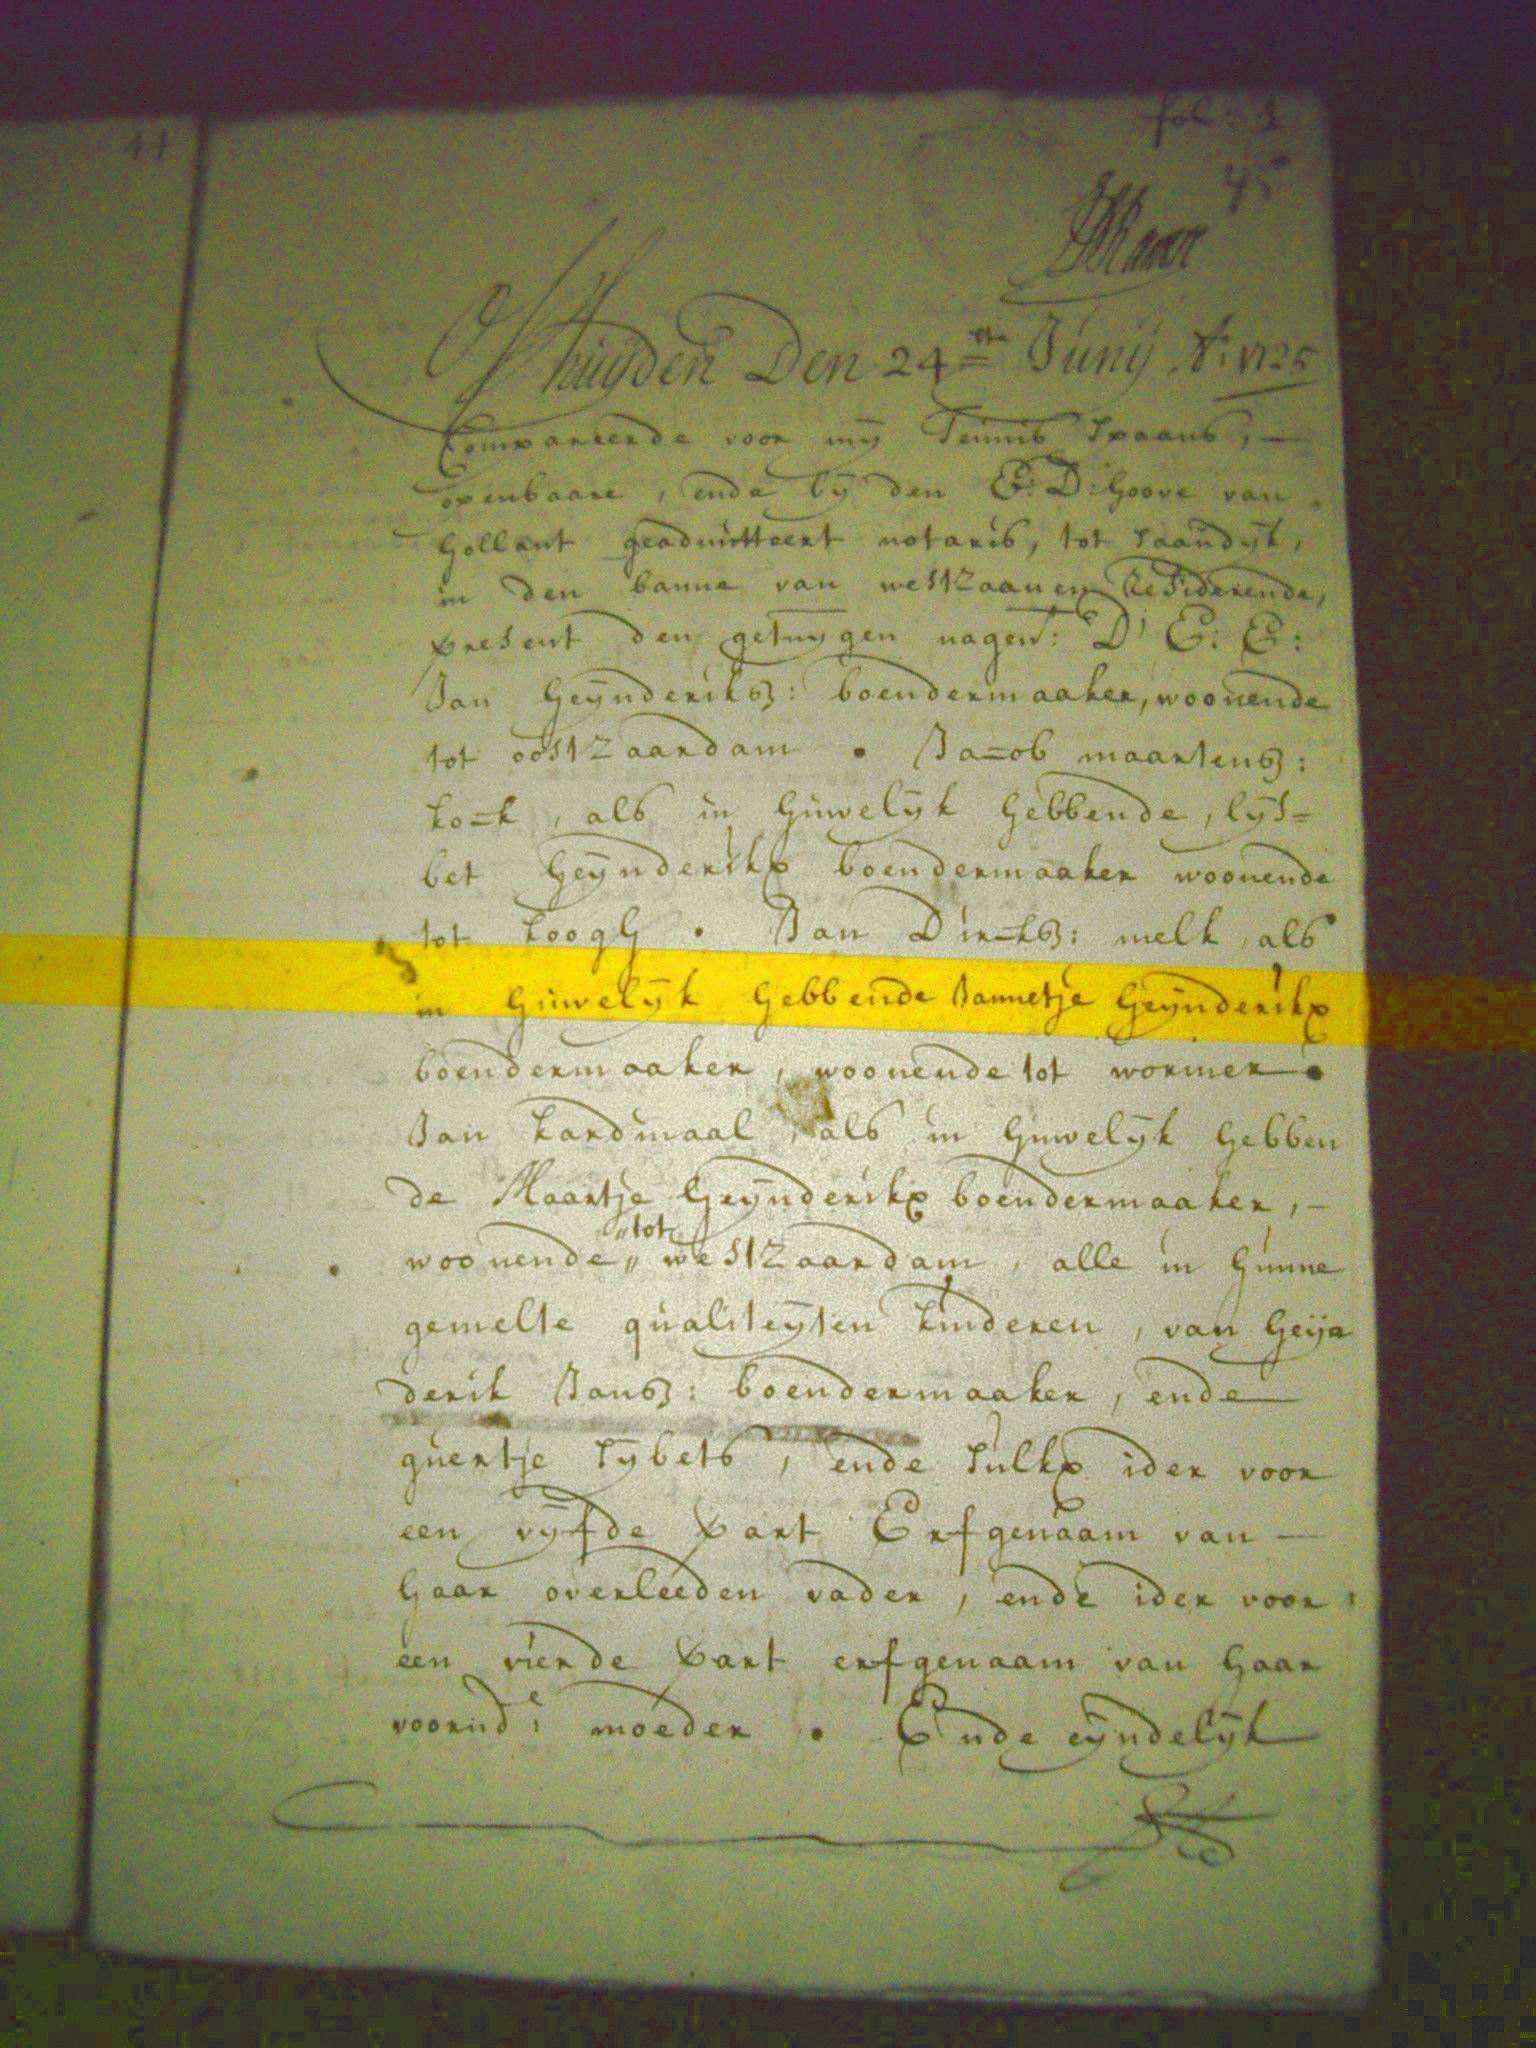 11
fol: 1
45
Op huijden Den 24sten Junij Ao: 1725
Compareerde voor mij Teunis Spaans, —
openbaare, ende bij den E: D: Hoove van
Hollant geadmitteert notaris, tot Saandijk,
in den banne van westzaanen Residerende,
present den getuijgen nagen: D' E: E:
Jan Heijnderiksz: boendermaaker, woonende
tot oostzaardam . Jacob maartensz:
kock, als in Huwelijk Hebbende, lijs=
bet Heijnderikx boendermaaker woonende
tot koogh . Jan Dircksz: melk, als
in Huwelijk Hebbende Jannetje Heijnderikx
boendermaaker, woonende tot wormer .
Jan kardinaal, als in Huwelijk Hebben
de Maartje Heijnderikx boendermaaker, —
woonende „tot„ westzaardam, alle in Hunne
gemelte qualiteijten kinderen, van Heijn
derik Jansz: boendermaaker, ende
guertje Sijbets, ende Sulkx ider voor
een vijfde part Erfgenaam van —
Haar overleeden vader, ende ider voor
een vierde part erfgenaam van Haar
voornde: moeder . Ende eijndelijk